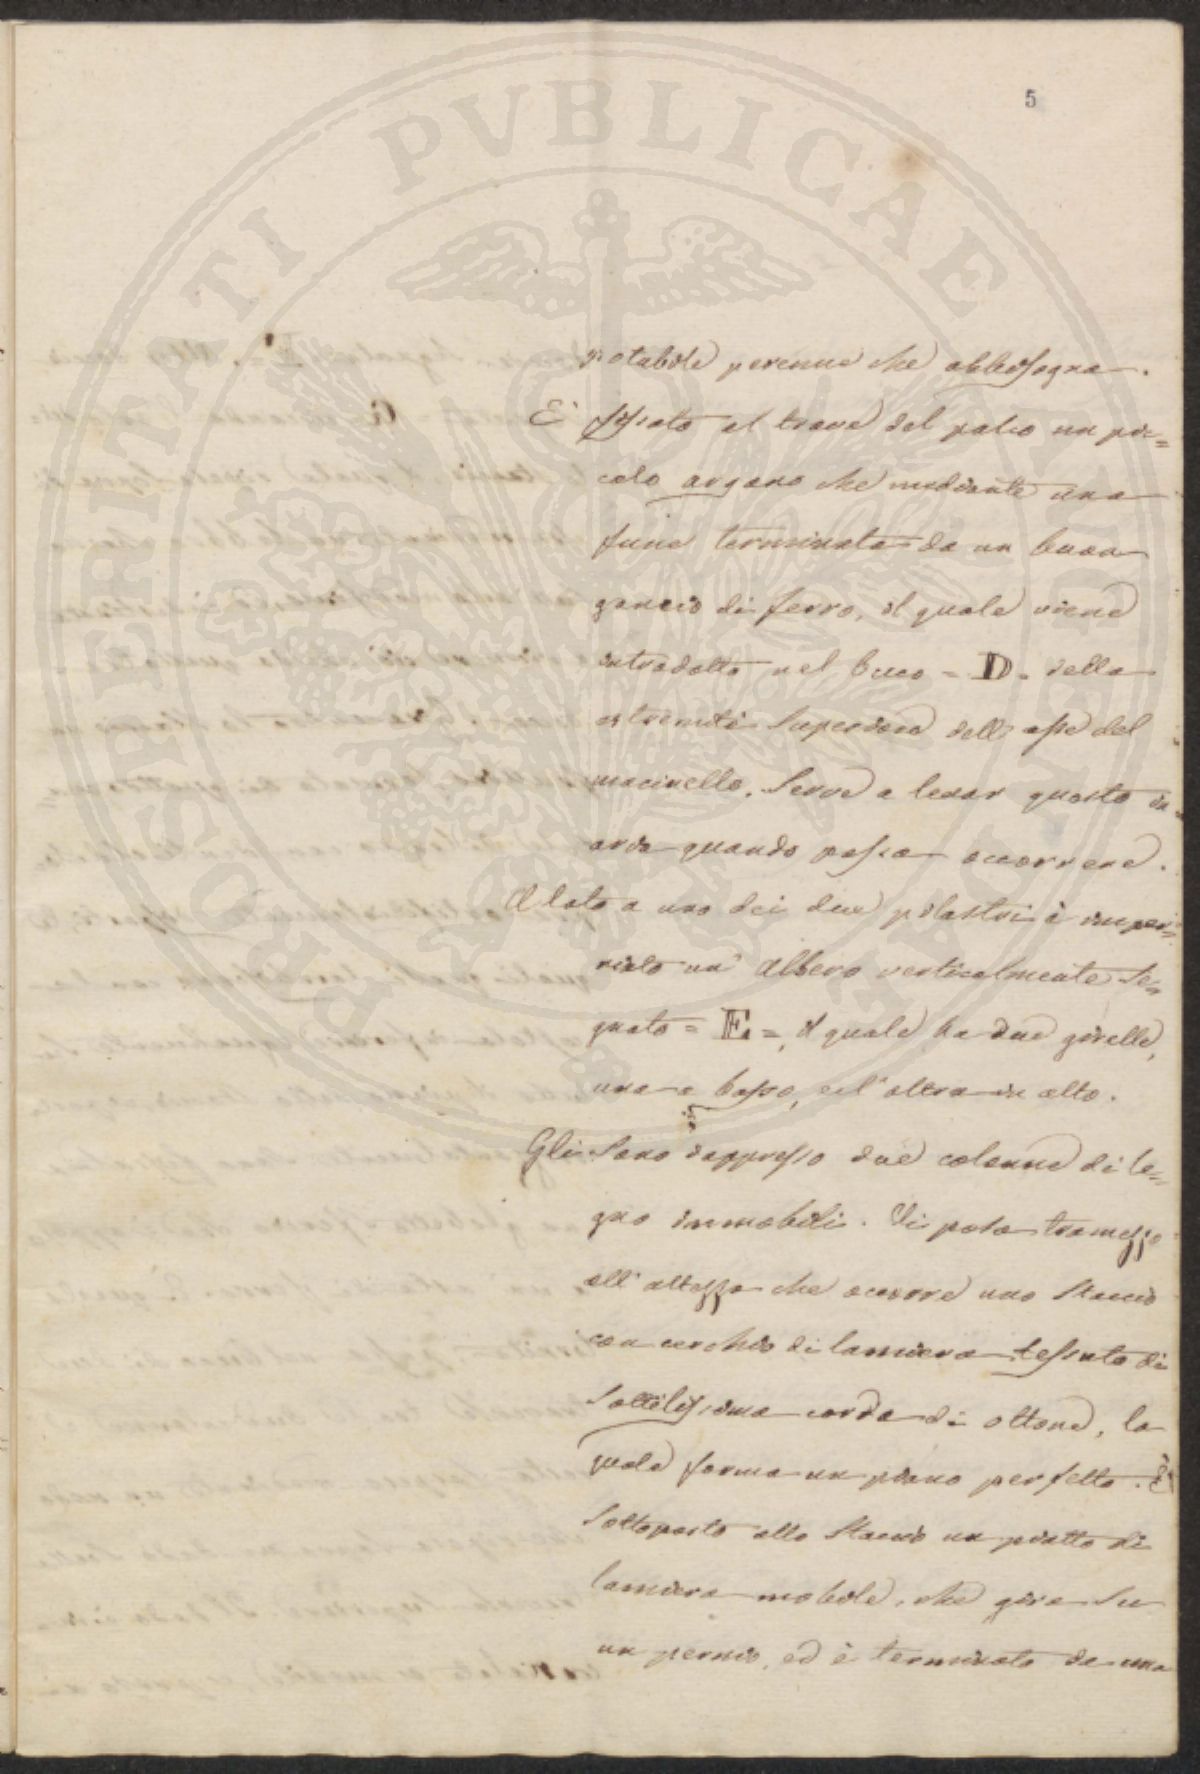 5
PROSPERITATI PVBLICAE AVGENDAE
potabile perenne che abbisogna.
E' fissato al trave del palco un pic=
colo argano che mediante una
fune terminata da un buon
gancio di ferro, il quale viene
introdotto nel buco = D = della
estremità superiore dell'asse del
macinello. Serve a levar questo in
aria quando possa occorrere.
A lato a uno dei due pilastri è imper=
niato un' albero verticalmente se=
gnato = E =, il quale ha due girelle,
una a basso, ed l'altra in alto.
Gli sono dappresso due colonne di le=
gno immobili. Si posa tramezzo
all'altezza che occorre uno staccio
con cerchio di lamiera tessuto di
sottilissima corda di ottone, la
quale forma un piano perfetto. È
sottoposto allo staccio un piatto di
lamiera mobile, che gira su
un pernio, ed è terminato da una